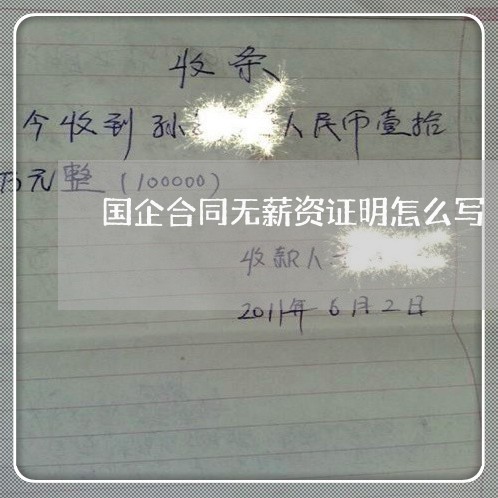 收条
今收到孙 人民币壹拾
万元整(100000)
国企合同无薪资证明怎么写
收款人
2011年6月2日